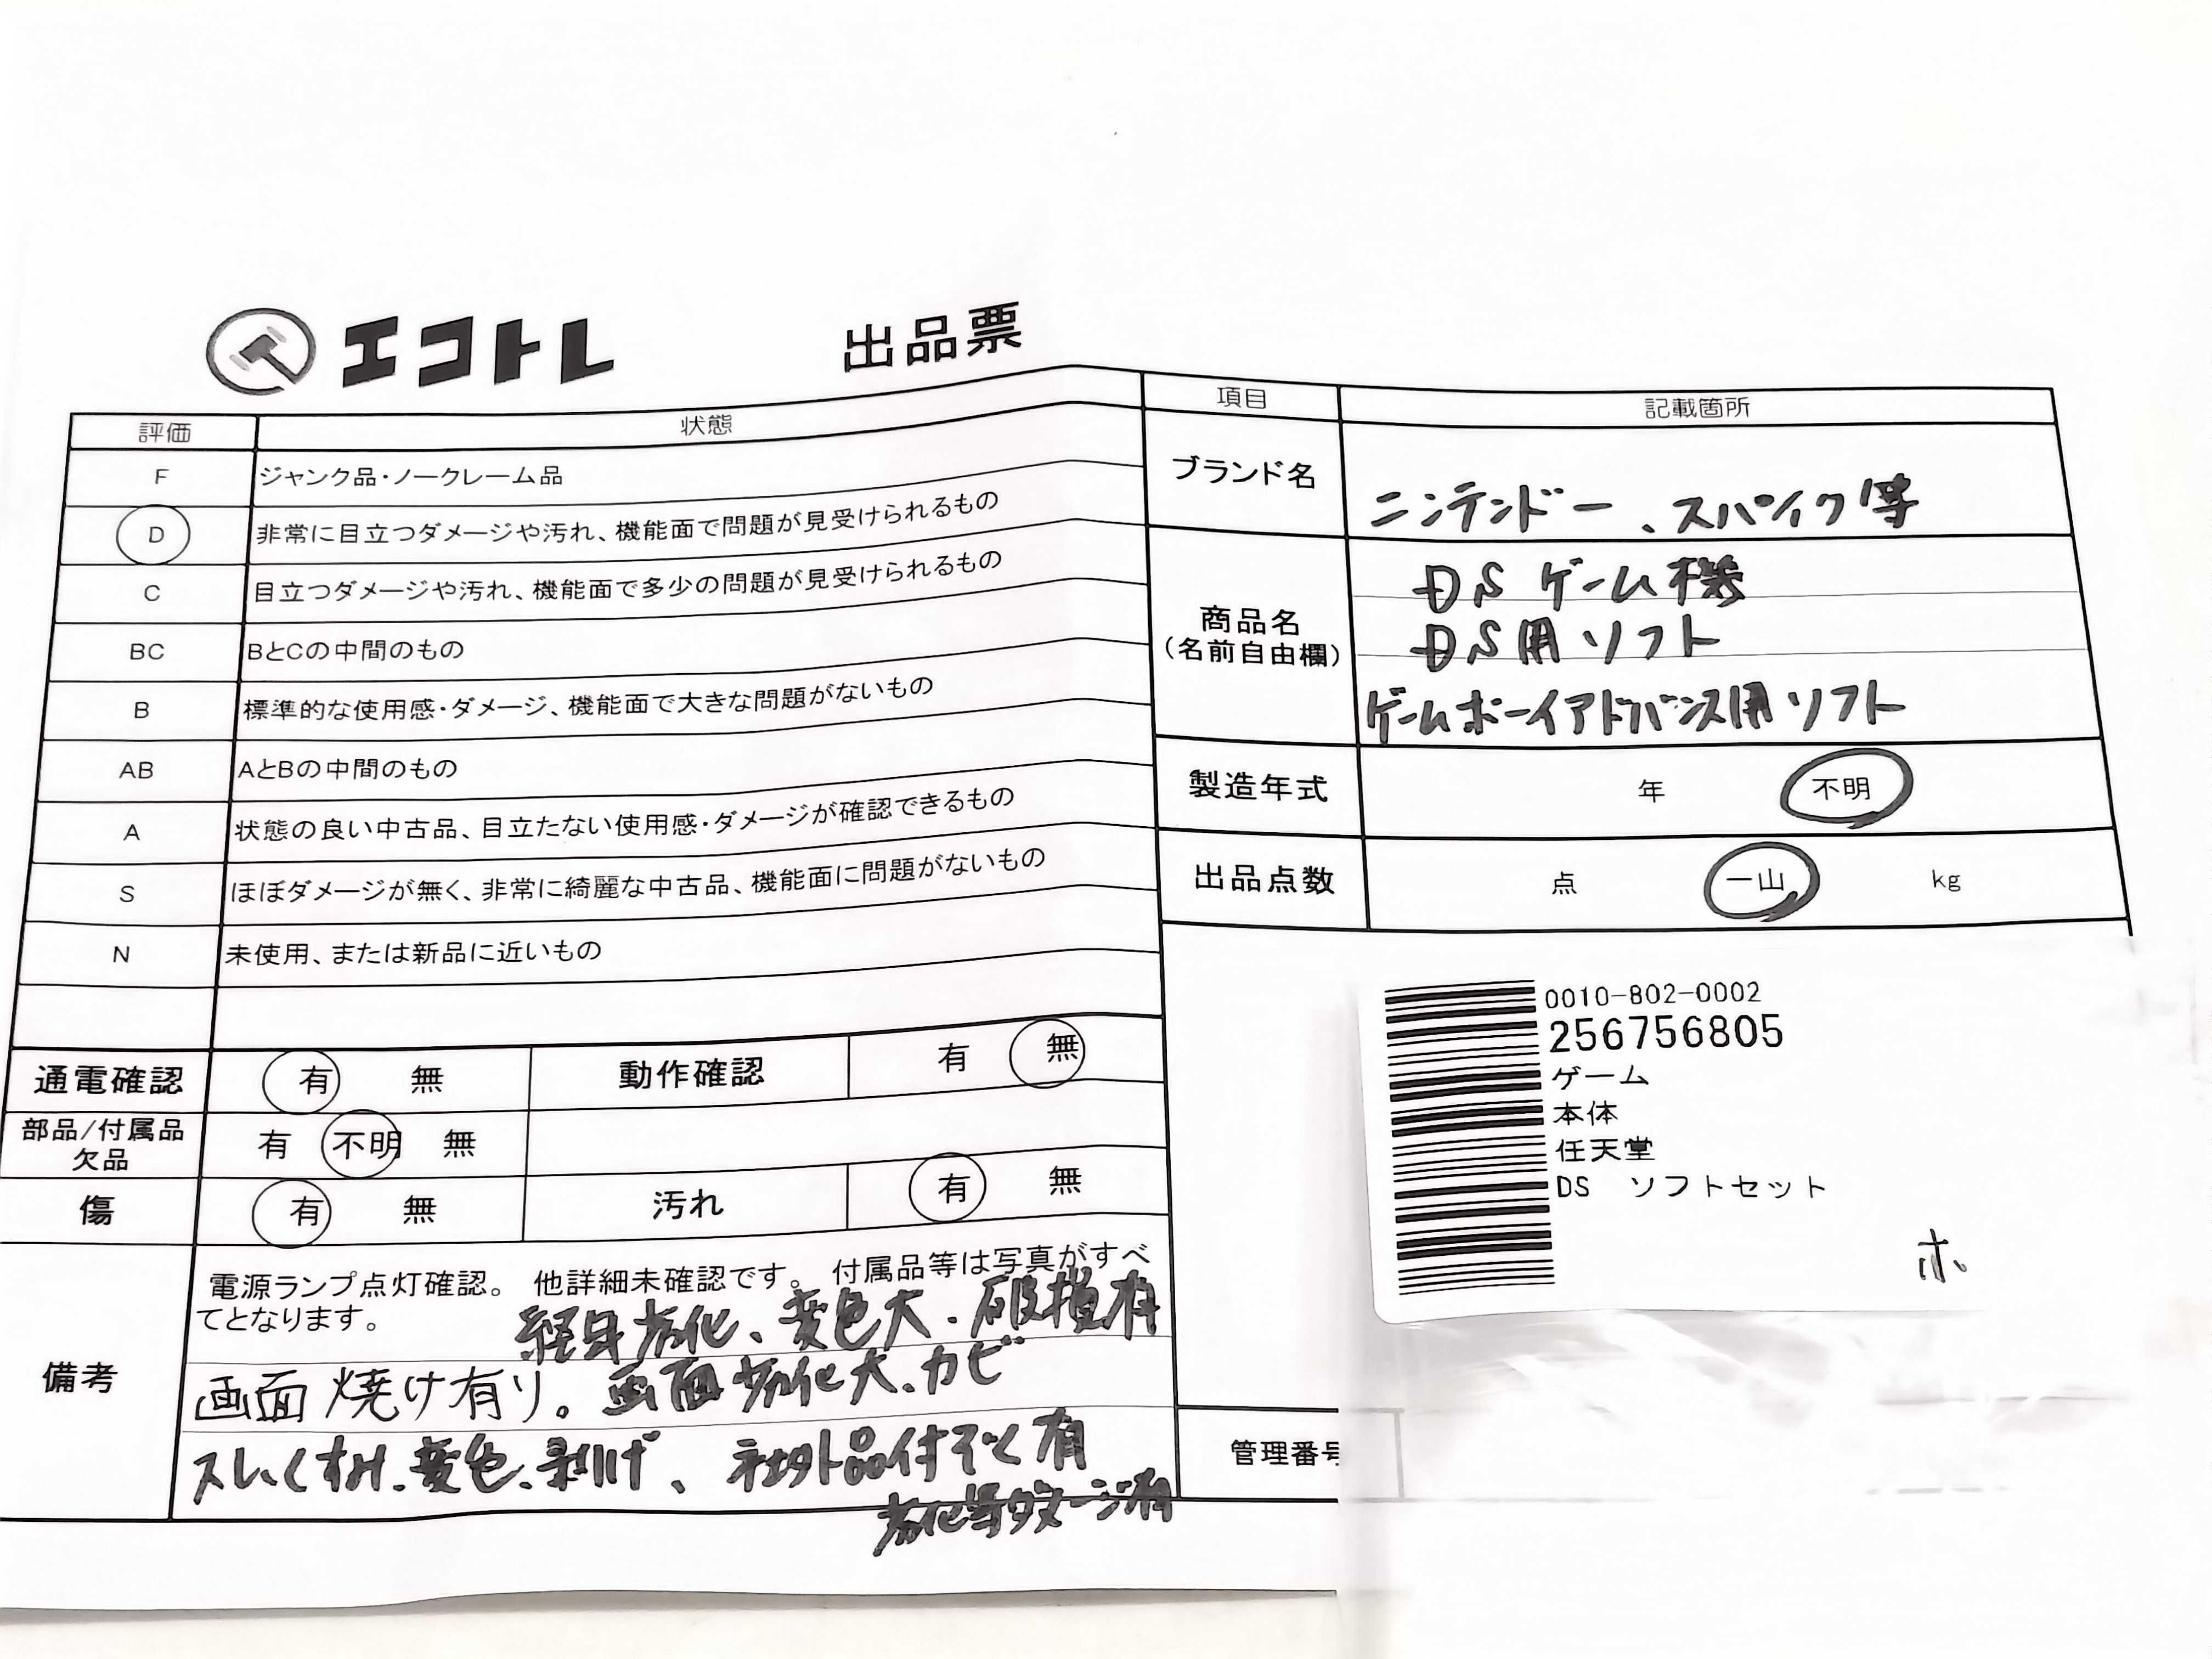 エコトレ 出品票
評価 状態
F ジャンク品・ノークレーム品
D 非常に目立つダメージや汚れ、機能面で問題が見受けられるもの
C 目立つダメージや汚れ、機能面で多少の問題が見受けられるもの
BC BとCの中間のもの
B 標準的な使用感・ダメージ、機能面で大きな問題がないもの
AB AとBの中間のもの
A 状態の良い中古品、目立たない使用感・ダメージが確認できるもの
S ほぼダメージが無く、非常に綺麗な中古品、機能面に問題がないもの
N 未使用、または新品に近いもの
通電確認 有 無 動作確認 有 無
部品/付属品
欠品
有 不明 無
傷 有 無 汚れ 有 無
備考
電源ランプ点灯確認。 他詳細未確認です。 付属品等は写真がすべ
てとなります。
経年劣化、変色大、破損有
画面焼け有り。画面劣化大、カビ
スレ、くすみ、変色、剥げ、社外品付ぞく有
劣化等ダメージ有
項目 記載箇所
ブランド名 ニンテンドー、スパイク等
商品名
(名前自由欄)
DS ゲーム機
DS用ソフト
ゲームボーイアドバンス用ソフト
製造年式 年 不明
出品点数 点 一山 kg
0010-802-0002
256756805
ゲーム
本体
任天堂
DS ソフトセット
ホ
管理番号